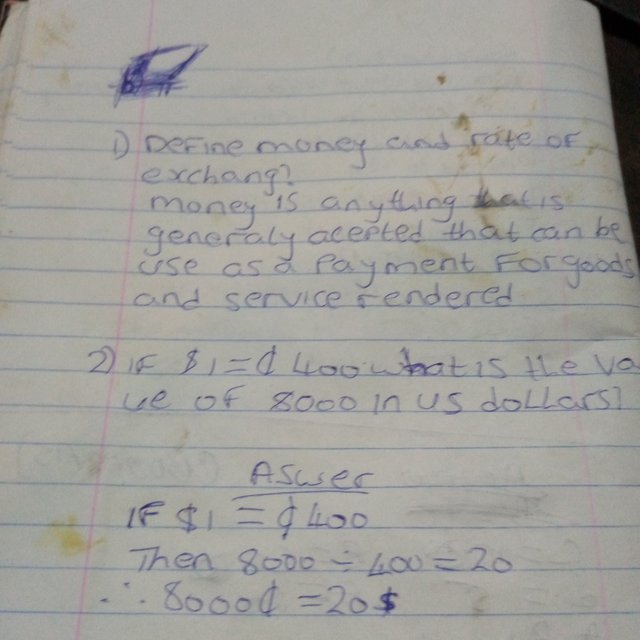 1) Define money and rate of
exchang?
money is anything that is
generaly acerted that can be
use as a Payment For goods
and service rendered
2) IF $1 = ₵400 what is the va
ue of 8000 in us dollars?
Aswer
IF $1 = ₵400
Then 8000 ÷ 400 = 20
∴ 8000₵ = 20$